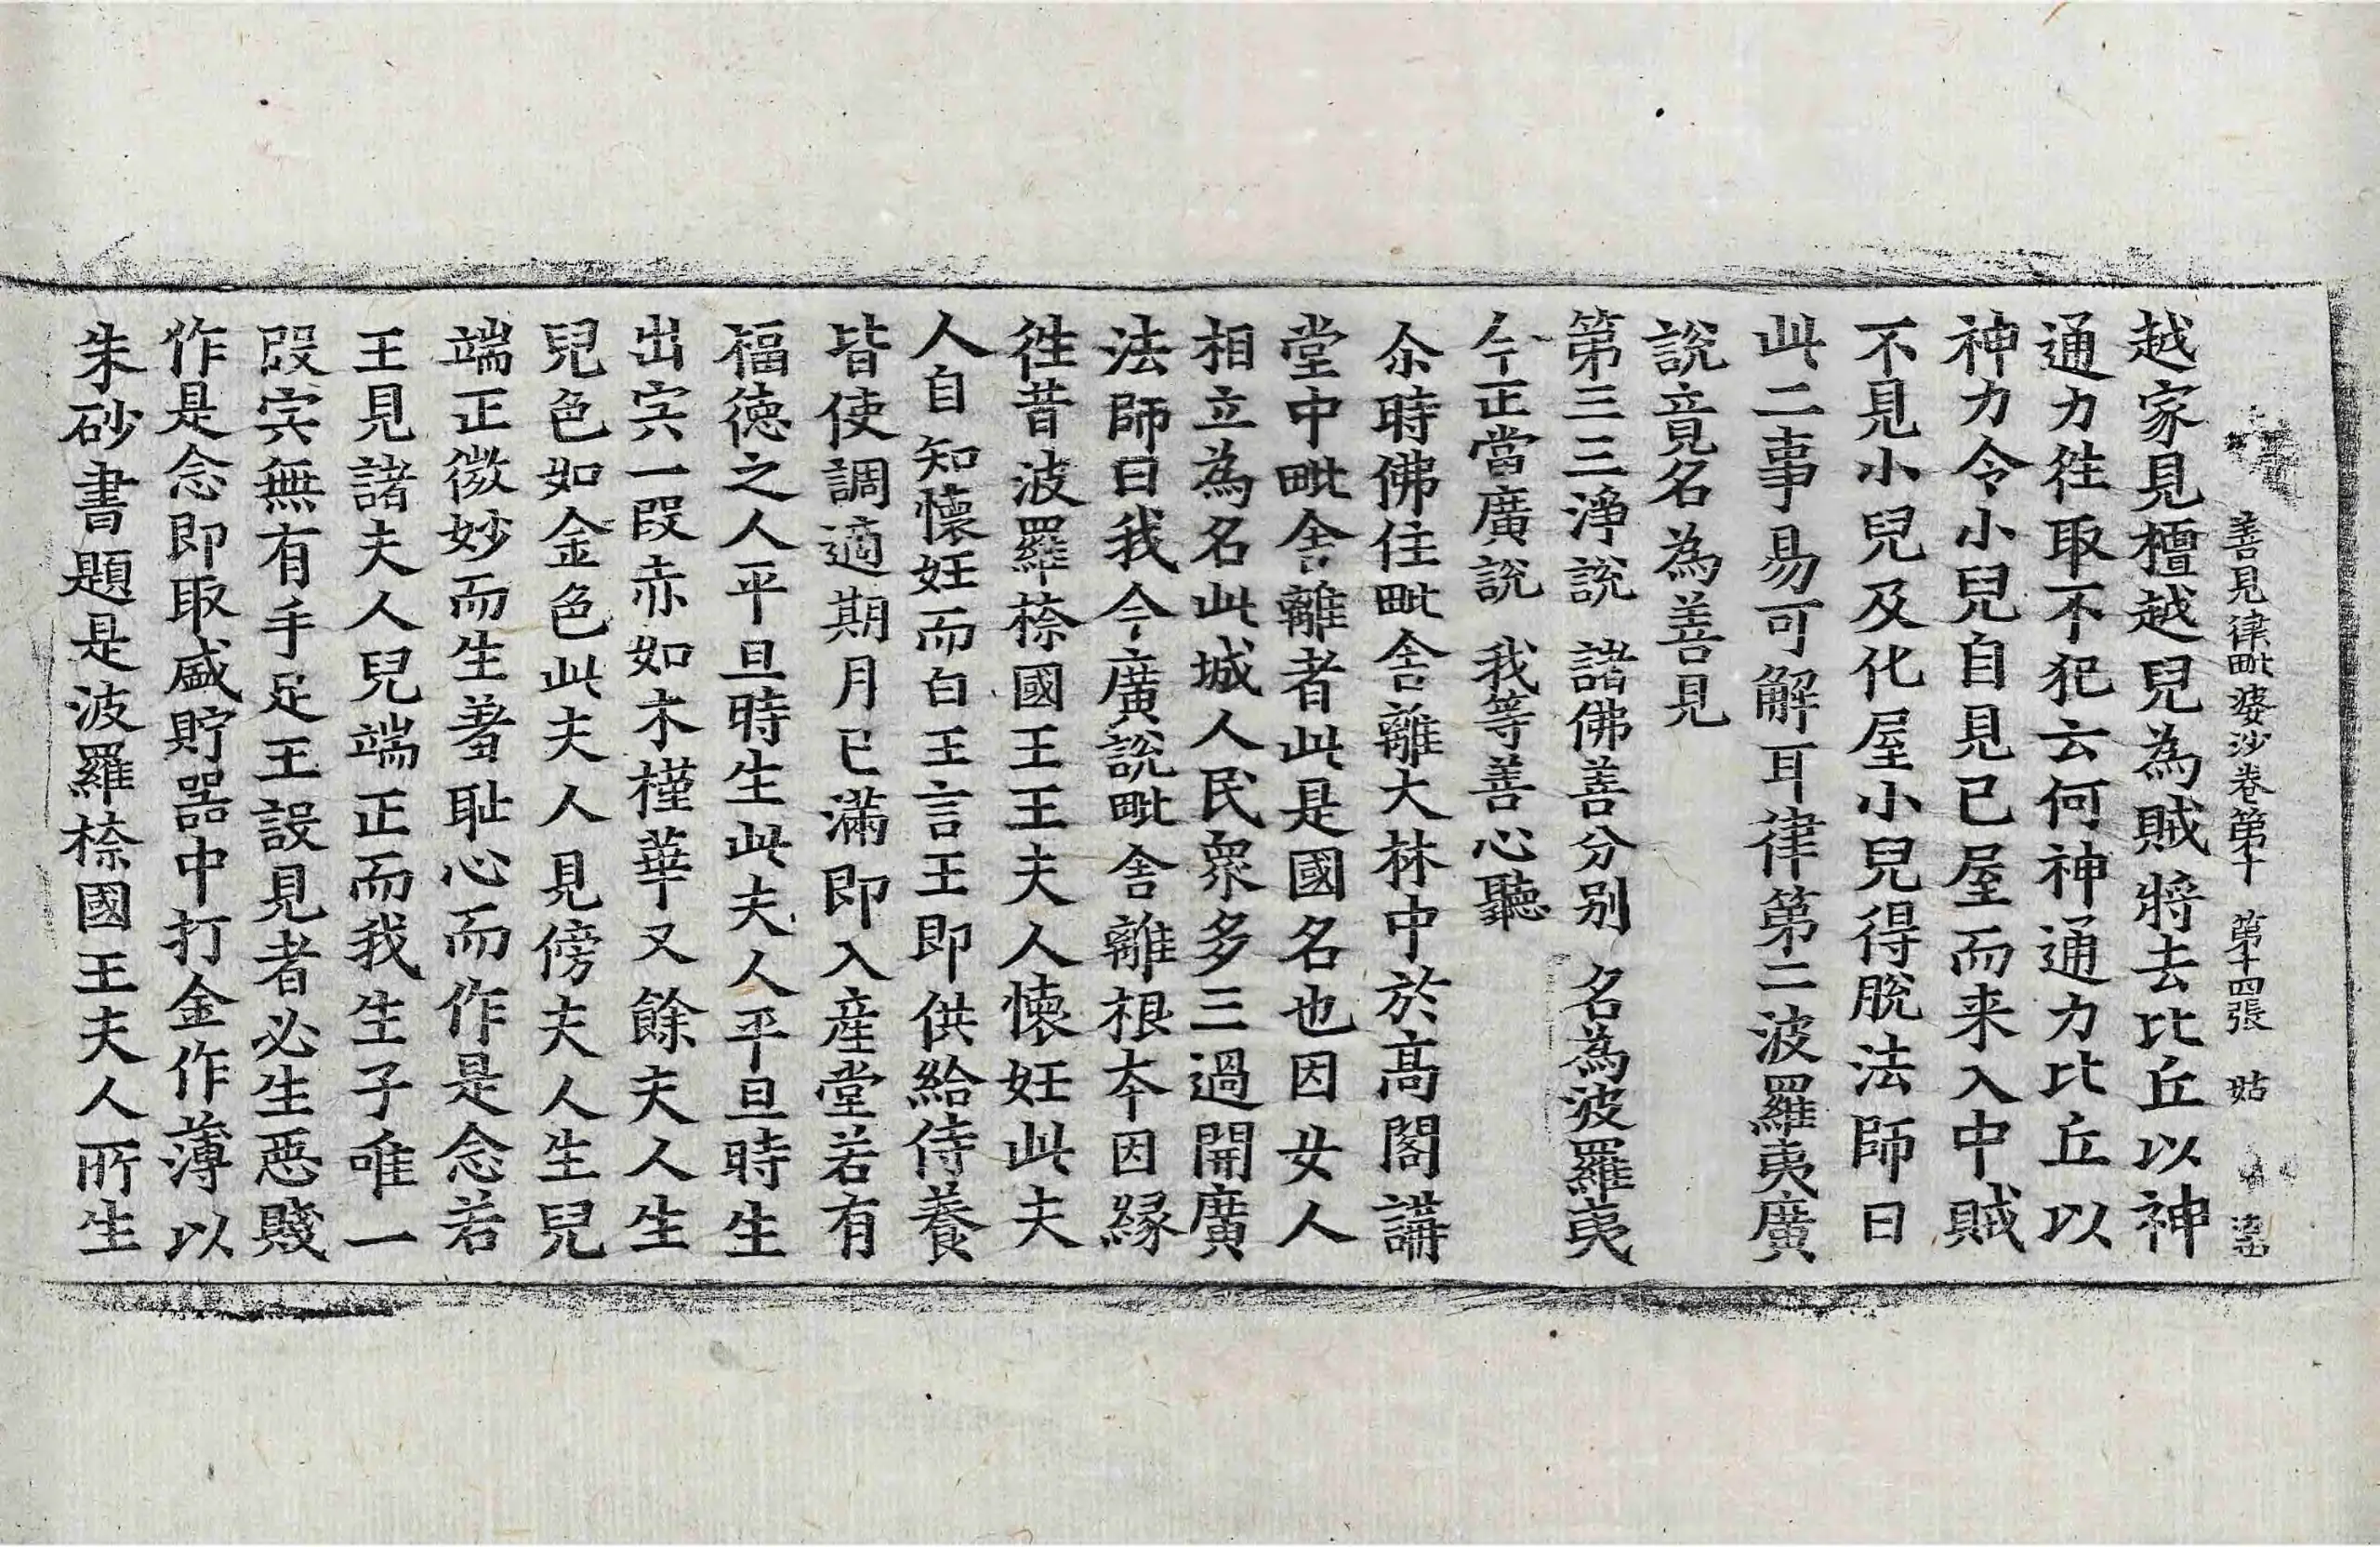 善見律毗婆沙卷第十 第十四張 姑
越家見檀越兒為賊將去比丘以神
通力往取不犯云何神通力比丘以
神力令小兒自見已屋而来入中賊
不見小兒及化屋小兒得脫法師曰
此二事易可解耳律第二波羅夷廣
說竟名為善見
第三三淨說 諸佛善分別 名為波羅夷
今正當廣說 我等善心聽
尒時佛住毗舍離大林中於高閣講
堂中毗舍離者此是國名也因女人
相立為名此城人民衆多三過開廣
法師曰我今廣說毗舍離根夲因緣
徃昔波羅㮈國王王夫人懷妊此夫
人自知懷妊而白王言王即供給侍養
皆使調適期月已滿即入產堂若有
福德之人平旦時生此夫人平旦時生
出宍一段赤如木槿華又餘夫人生
兒色如金色此夫人見傍夫人生兒
端正微妙而生羞耻心而作是念若
王見諸夫人兒端正而我生子唯一
段宍無有手足王設見者必生惡賤
作是念即取盛貯器中打金作薄以
朱砂書題是波羅㮈國王夫人所生